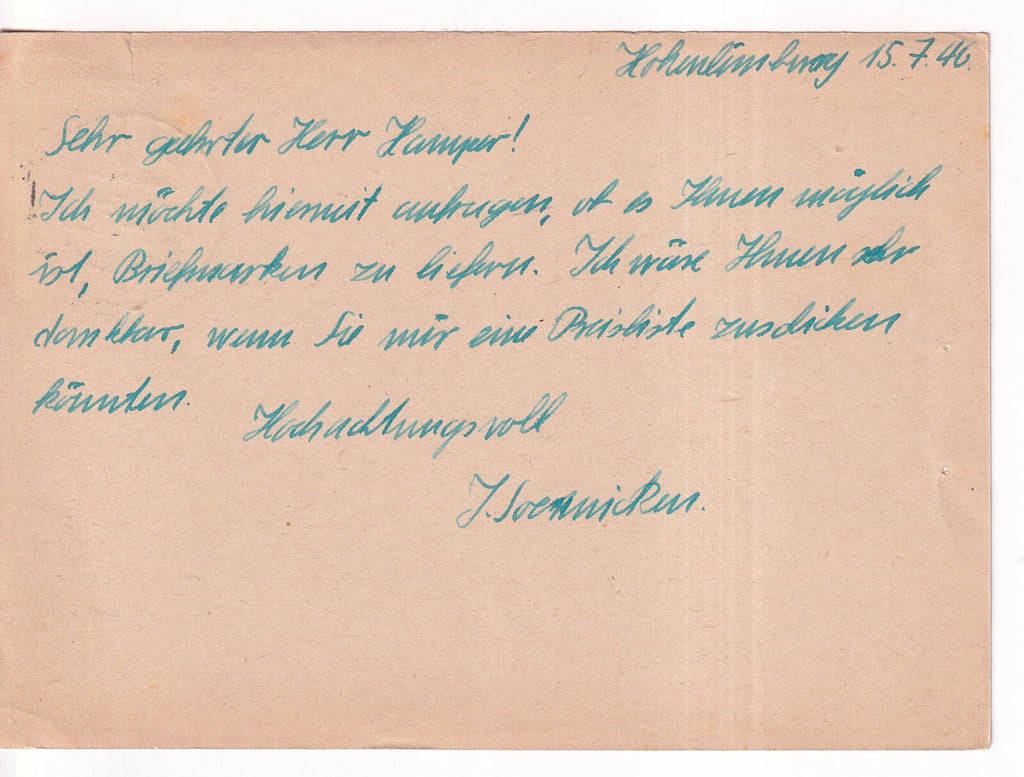 Hohenlimburg 15.7.46.
Sehr geehrter Herr Kamper!
Ich möchte hiermit anfragen, ob es Ihnen möglich
ist, Briefmarken zu liefern. Ich wäre Ihnen sehr
dankbar, wenn Sie mir eine Preisliste zuschicken
könnten.
Hochachtungsvoll
J. Soennicken.